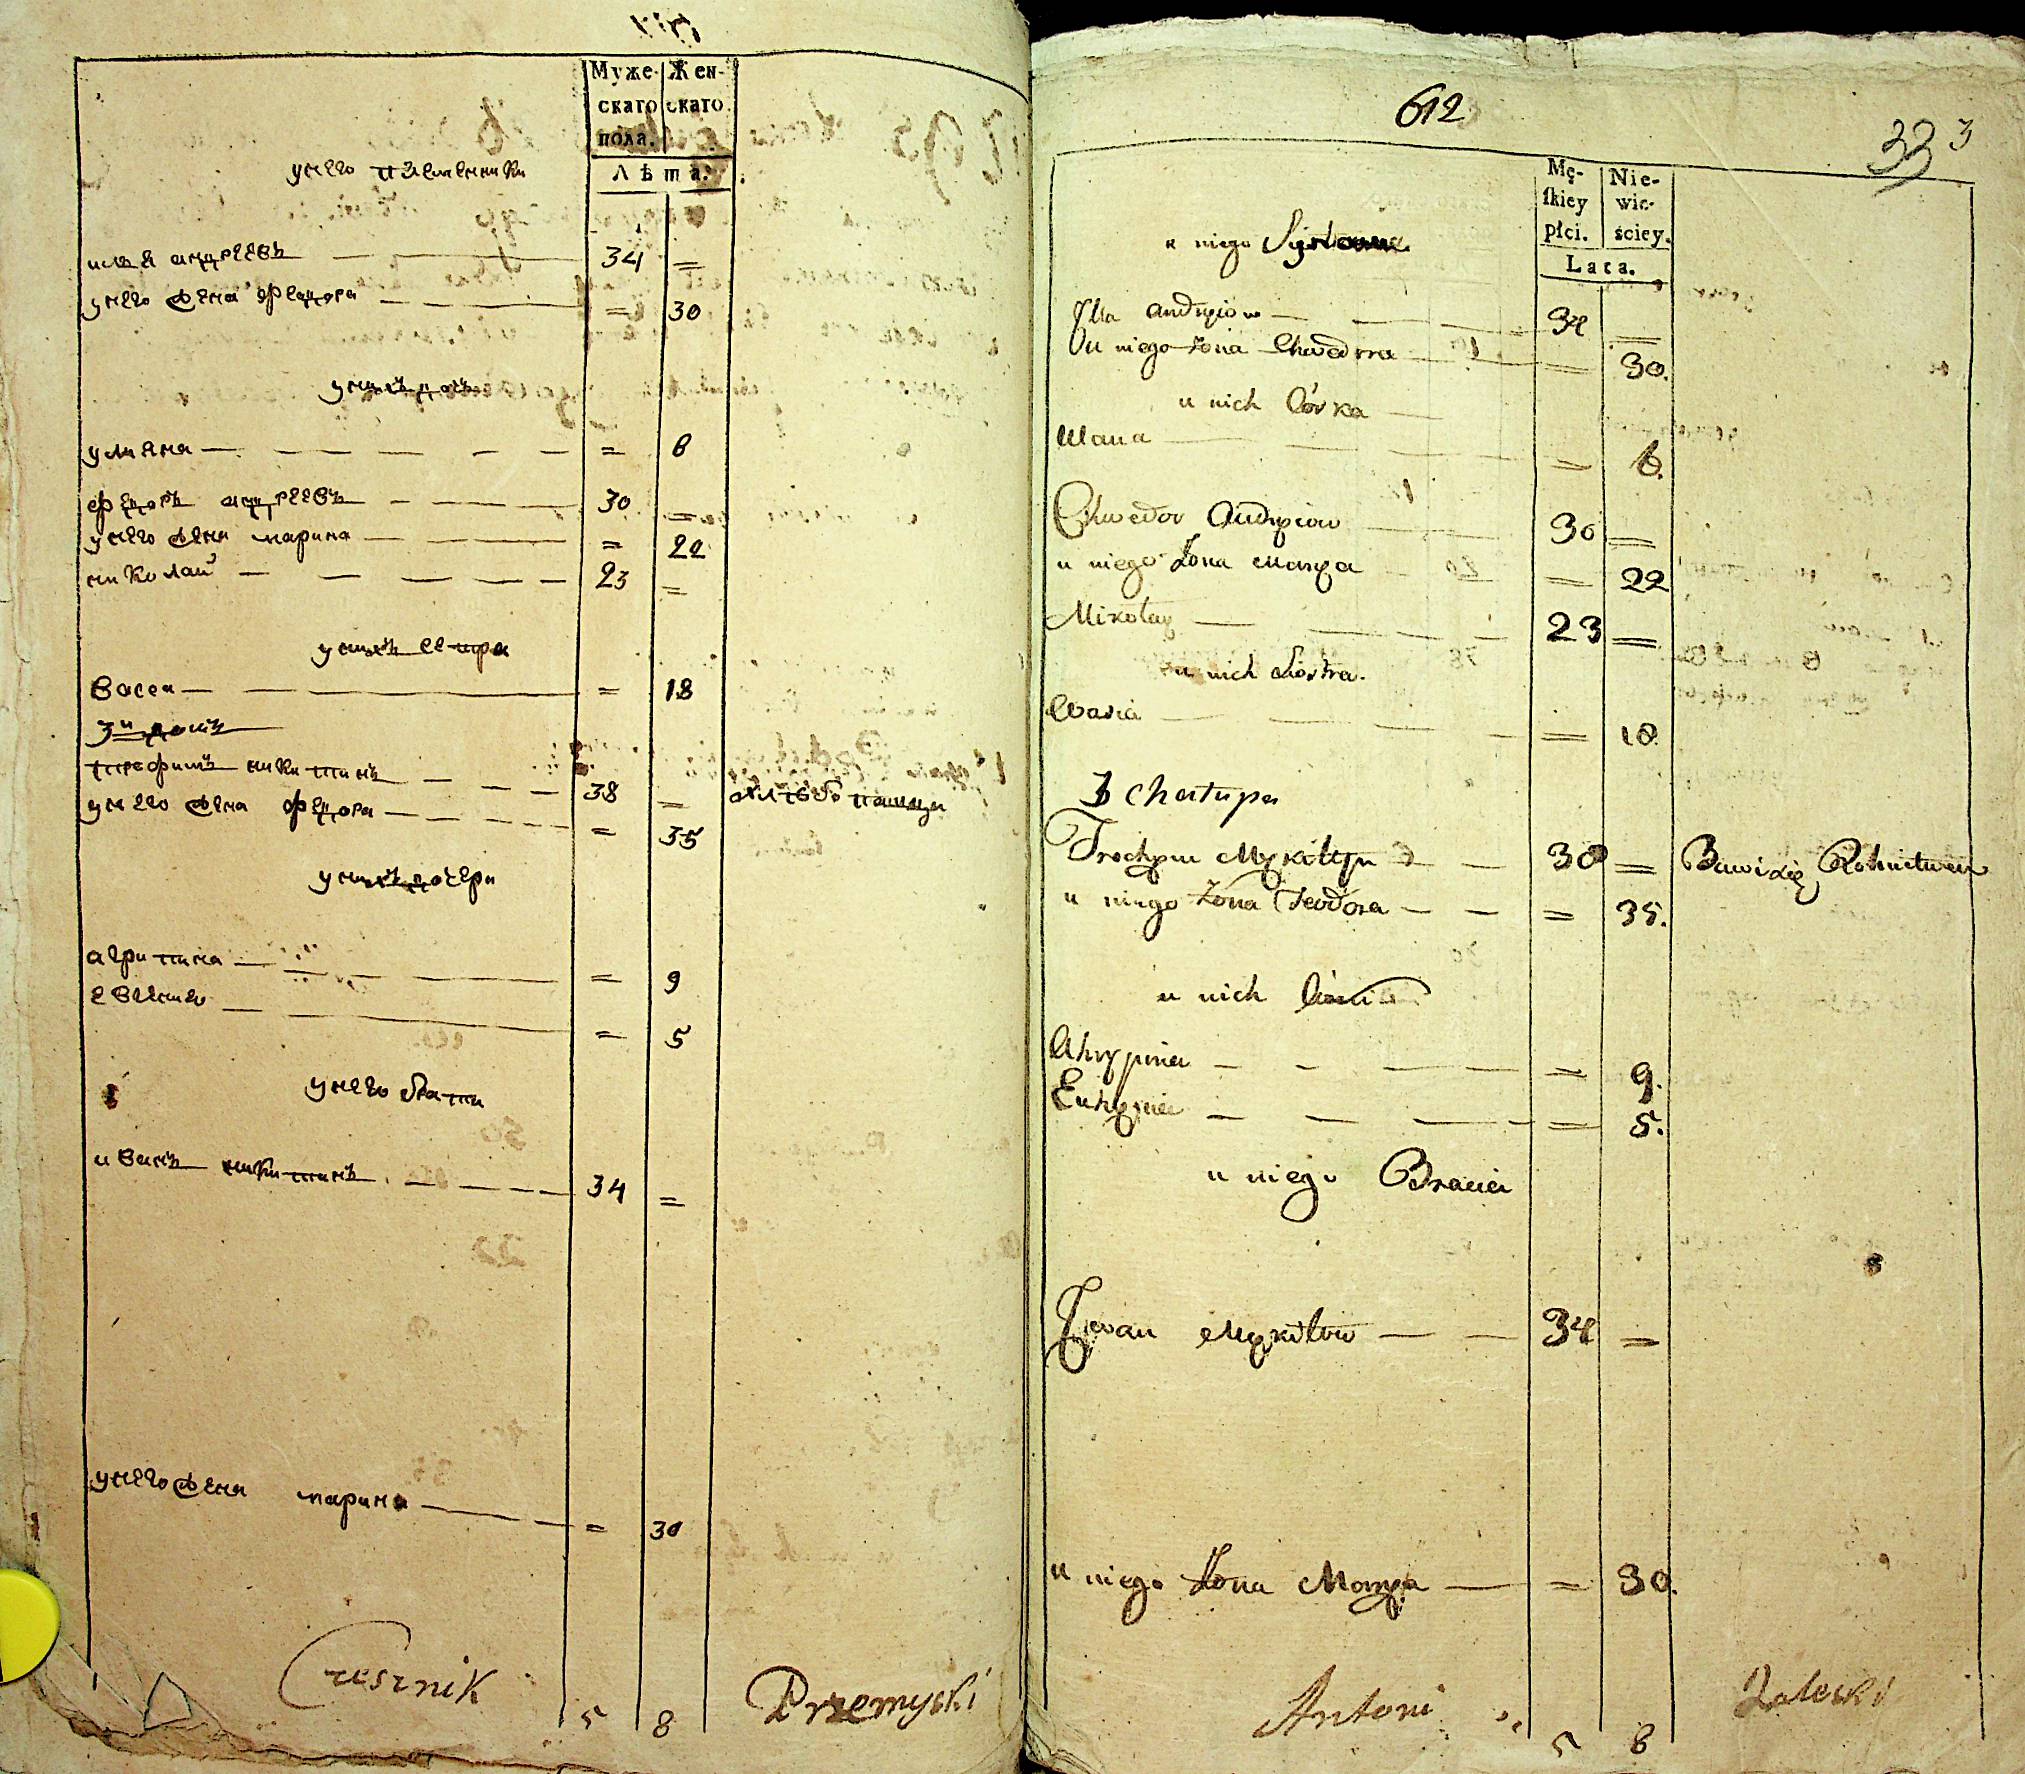 Муже-
скаго
пола.
Жен-
скаго.
Лѣта.
у него племенники
илья андреевъ — 34 =
у него жена ѳедора — = 30
у нихъ дочь
улияна — = 6
ѳедоръ андреевъ — 30 =
у него жена марина — = 22
николай — 23 =
у нихъ сестра
Васса — = 18
3й домъ
трофимъ никитинъ — 38 =
у него жена ѳедора — = 35
у нихъ дочери
агрипина — = 9
евгения — = 5
у него братъ
иванъ никитинъ — 34 =
у него жена марина — = 30
Czesznik 5 8 Przemyski
612
33 3
Mę-
skiey
płci.
Nie-
wie-
ściey.
Lata.
u niego
Illa Andryiow — 34 =
u niego żona Chwedora — = 30.
u nich Córka —
Ulana — = 6.
Chwedor Andryiow — 30 =
u niego Żona Maryia — = 22
Mikołay — 23 =
u nich Siostra.
Wasia — = 18.
3 Chałupa
Trochym Mykityn — 38 = Bawi się Rolnictwem
u niego Żona Teodora — = 35.
u nich Córki
Ahrypina — = 9.
Euhenia — = 5.
u niego Bracia
Iwan Mykitow — 34 =
u niego Żona Maryia — = 30.
Antoni 5 8 Zaleski